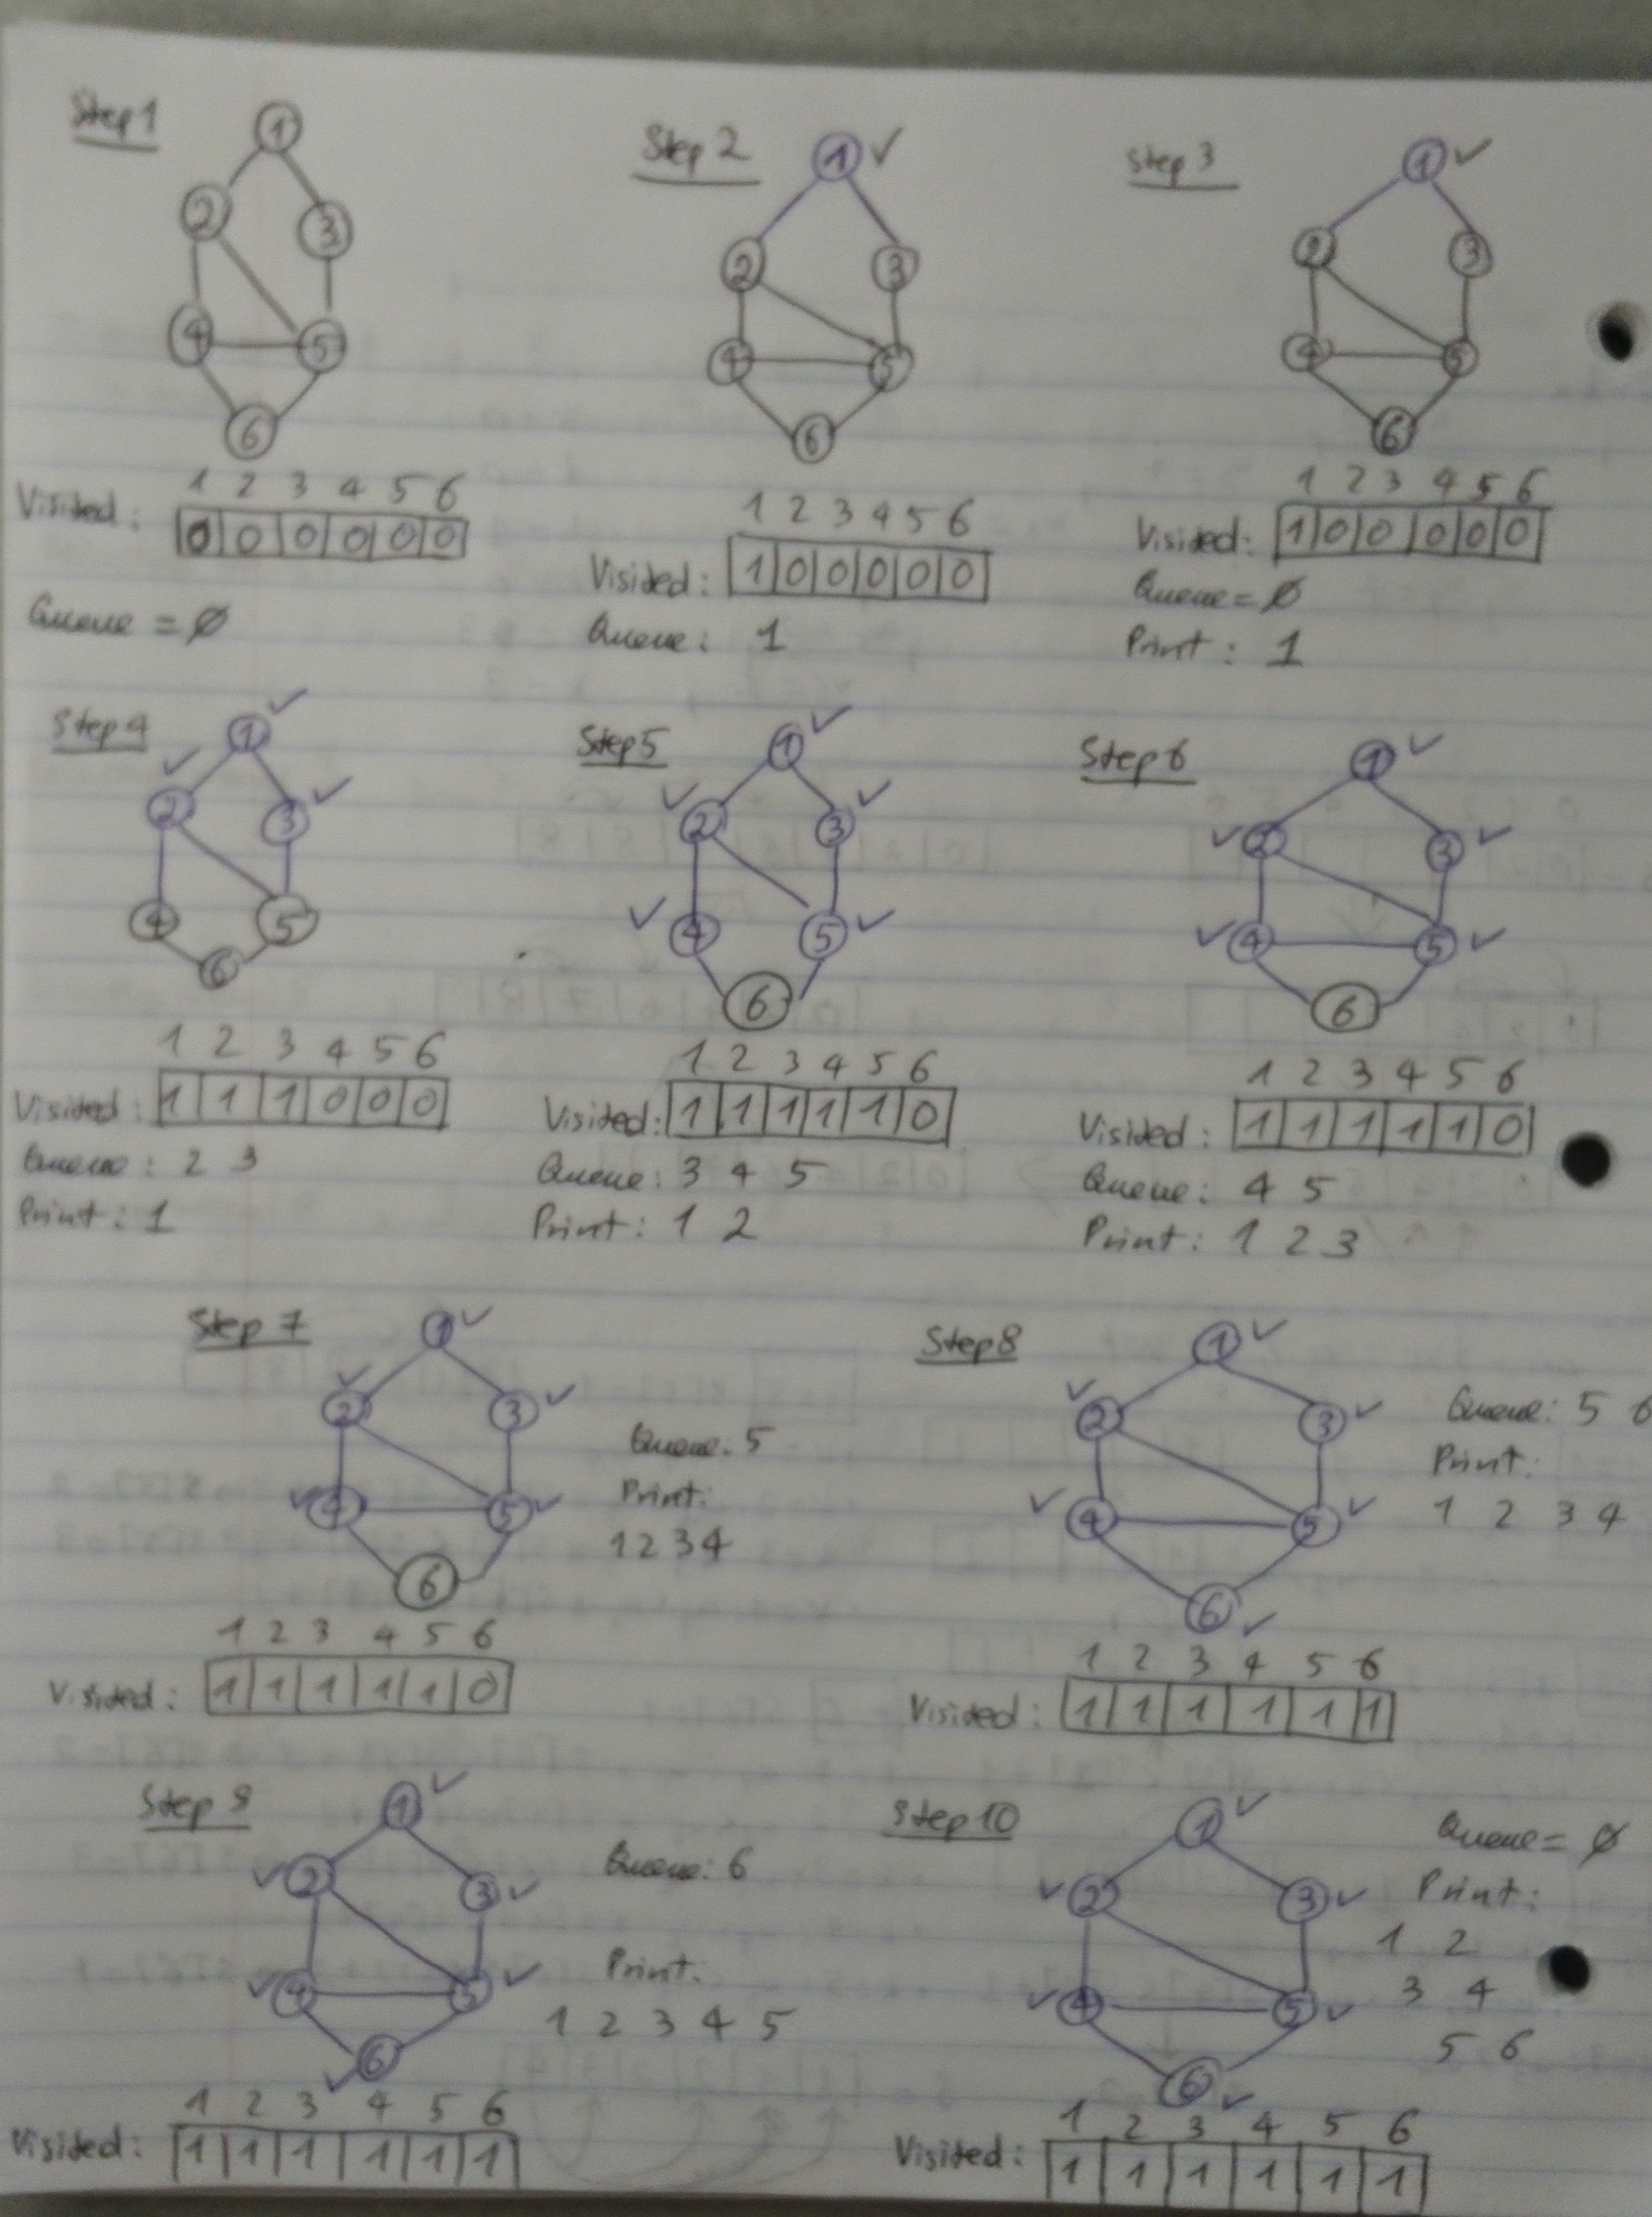 Step 1
1
2
3
4 5
6
1 2 3 4 5 6
Visited: 0 0 0 0 0 0
Queue = Ø
Step 2
1 ✓
2 3
4 5
6
1 2 3 4 5 6
Visited: 1 0 0 0 0 0
Queue: 1
Step 3
1 ✓
2 3
4 5
6
1 2 3 4 5 6
Visited: 1 0 0 0 0 0
Queue = Ø
Print: 1
Step 4
1 ✓
✓ 2 3 ✓
4 5
6
1 2 3 4 5 6
Visited: 1 1 1 0 0 0
Queue: 2 3
Print: 1
Step 5
1 ✓
✓ 2 3 ✓
✓ 4 5 ✓
6
1 2 3 4 5 6
Visited: 1 1 1 1 1 0
Queue: 3 4 5
Print: 1 2
Step 6
1 ✓
✓ 2 3 ✓
✓ 4 5 ✓
6
1 2 3 4 5 6
Visited: 1 1 1 1 1 0
Queue: 4 5
Print: 1 2 3
Step 7
1 ✓
✓ 2 3 ✓
✓ 4 5 ✓
6
Queue: 5
Print:
1 2 3 4
1 2 3 4 5 6
Visited: 1 1 1 1 1 0
Step 8
1 ✓
✓ 2 3 ✓
✓ 4 5 ✓
6 ✓
Queue: 5 6
Print:
1 2 3 4
1 2 3 4 5 6
Visited: 1 1 1 1 1 1
Step 9
1 ✓
✓ 2 3 ✓
✓ 4 5 ✓
✓ 6
Queue: 6
Print:
1 2 3 4 5
1 2 3 4 5 6
Visited: 1 1 1 1 1 1
Step 10
1 ✓
✓ 2 3 ✓
✓ 4 5 ✓
6 ✓
Queue = Ø
Print:
1 2
3 4
5 6
1 2 3 4 5 6
Visited: 1 1 1 1 1 1